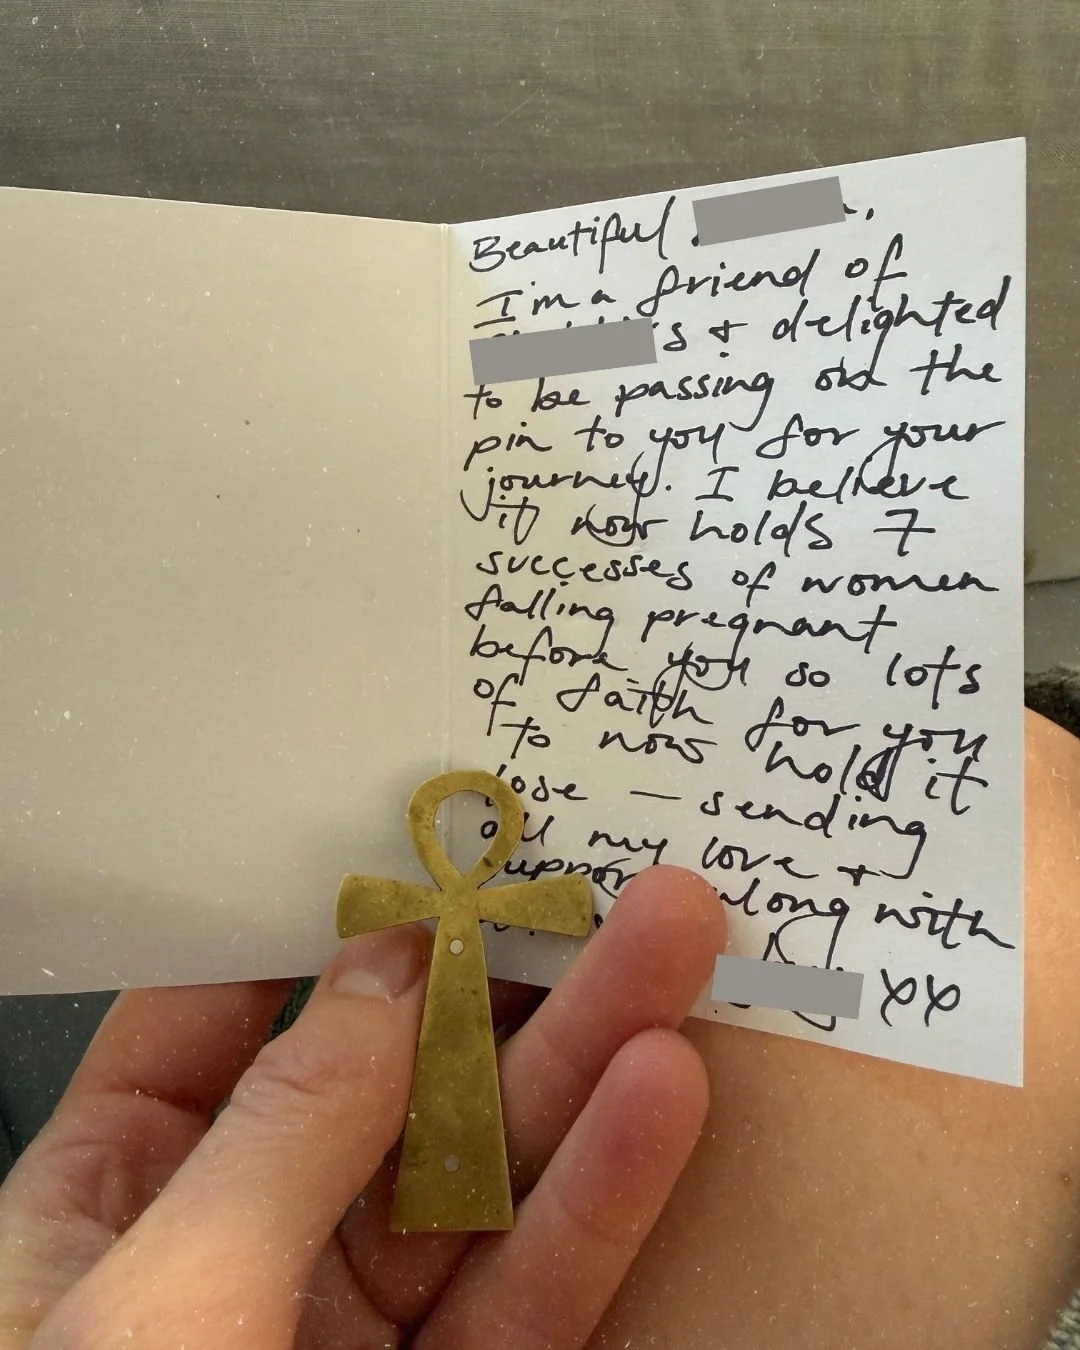 Beautiful
I'm a friend of
's & delighted
to be passing on the
pin to you for your
journey. I believe
it now holds 7
successes of women
falling pregnant
before you so lots
of faith for you
to now hold it
lose — sending
all my love &
support along with
xx